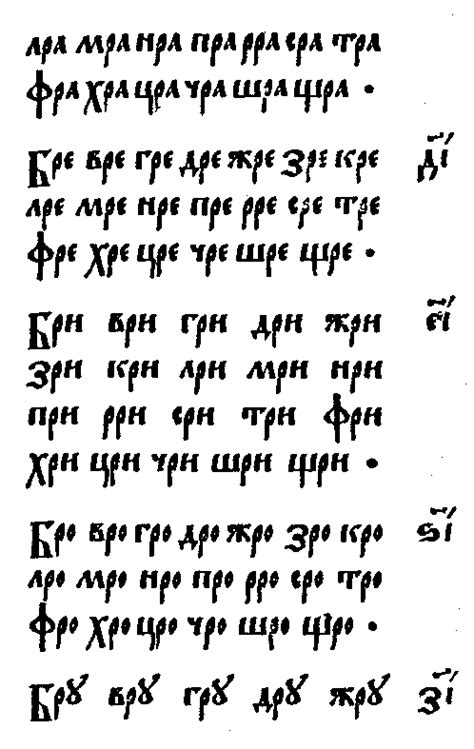 лра мра нра пра рра сра тра
фра хра цра чра шра щра ·
Бре вре гре дре жре зре кре д҃і
лре мре нре пре рре сре тре
фре хре цре чре шре щре ·
Бри ври гри дри жри є҃і
Зри кри лри мри нри
при рри сри три фри
хри цри чри шри щри ·
Бро вро гро дро жро зро кро ѕ҃і
лро мро нро про рро сро тро
фро хро цро чро шро щро ·
Брꙋ врꙋ грꙋ дрꙋ жрꙋ з҃і